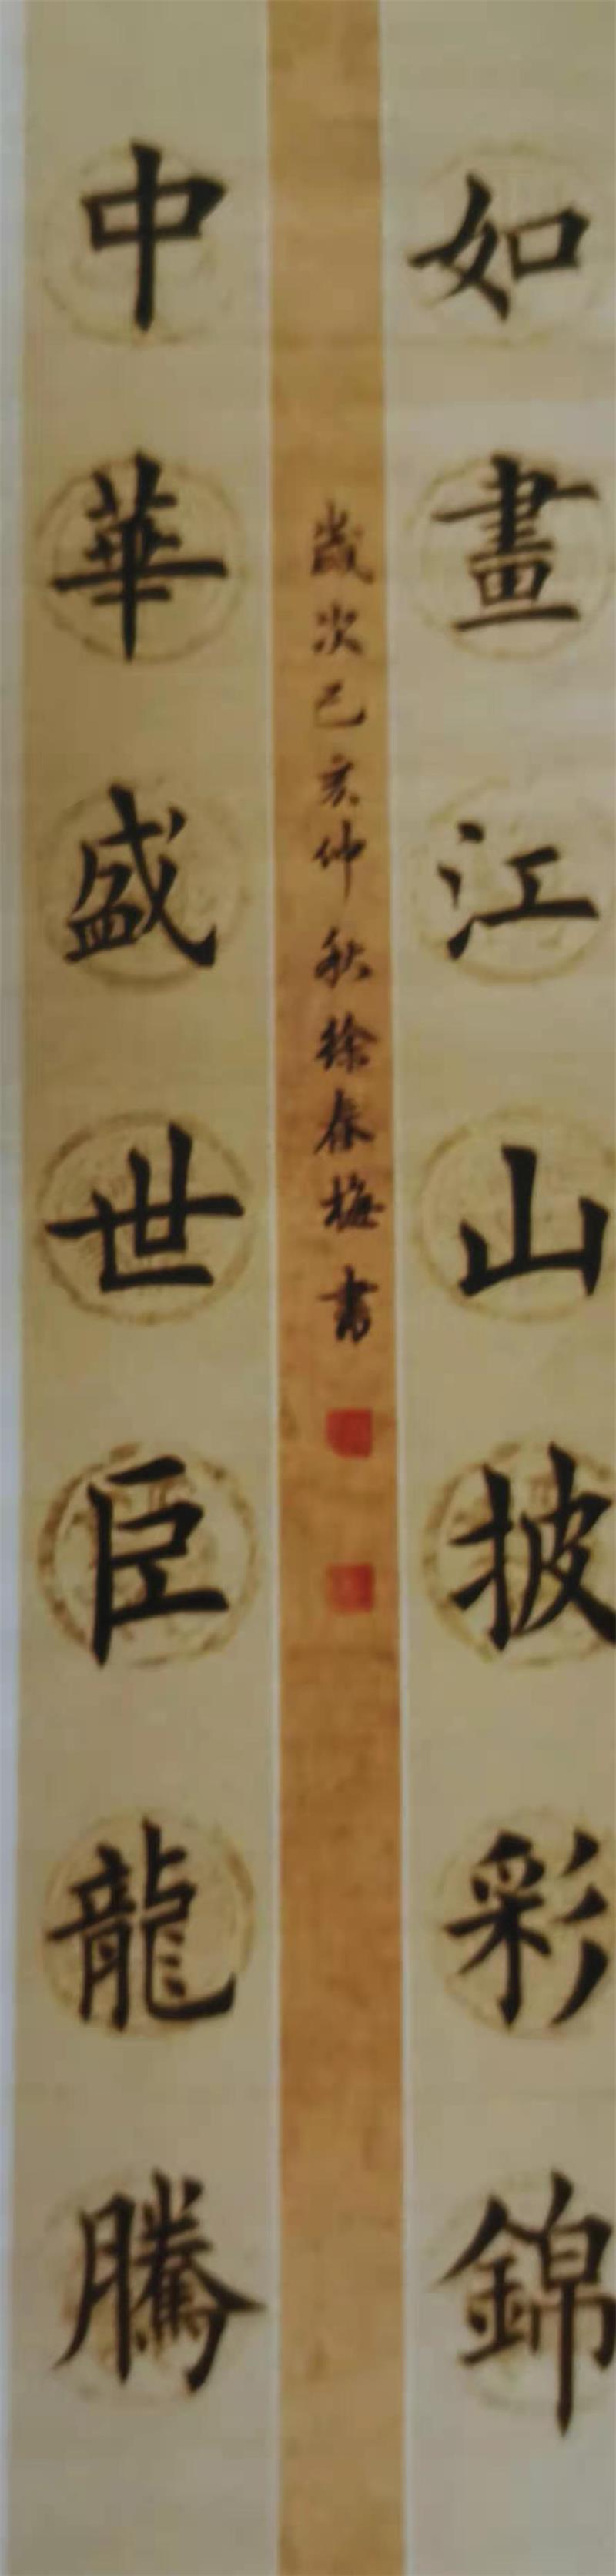 如畫江山披彩錦
歲次己亥仲秋徐春梅書
中華盛世臣龍騰